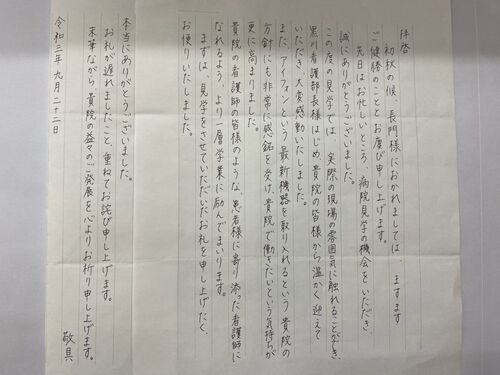 拝啓
初秋の候、長門様におかれましては、ますます
ご健勝のこととお慶び申し上げます。
先日はお忙しいところ、病院見学の機会をいただき、
誠にありがとうございました。
この度の見学では、実際の現場の雰囲気に触れることができ、
黒川看護部長様はじめ、貴院の皆様から温かく迎えて
いただき、大変感動いたしました。
また、アイフォンという最新機器を取り入れるという貴院の
方針にも非常に感銘を受け、貴院で働きたいという気持ちが
更に高まりました。
貴院の看護師の皆様のような、患者様に寄り添った看護師に
なれるよう、より一層学業に励んでまいります。
まずは、見学をさせていただいたお礼を申し上げたく、
お便りいたしました。
本当にありがとうございました。
お礼が遅れましたこと、重ねてお詫び申し上げます。
末筆ながら貴院の益々のご発展を心よりお祈り申し上げます。
敬具
令和三年九月二十二日